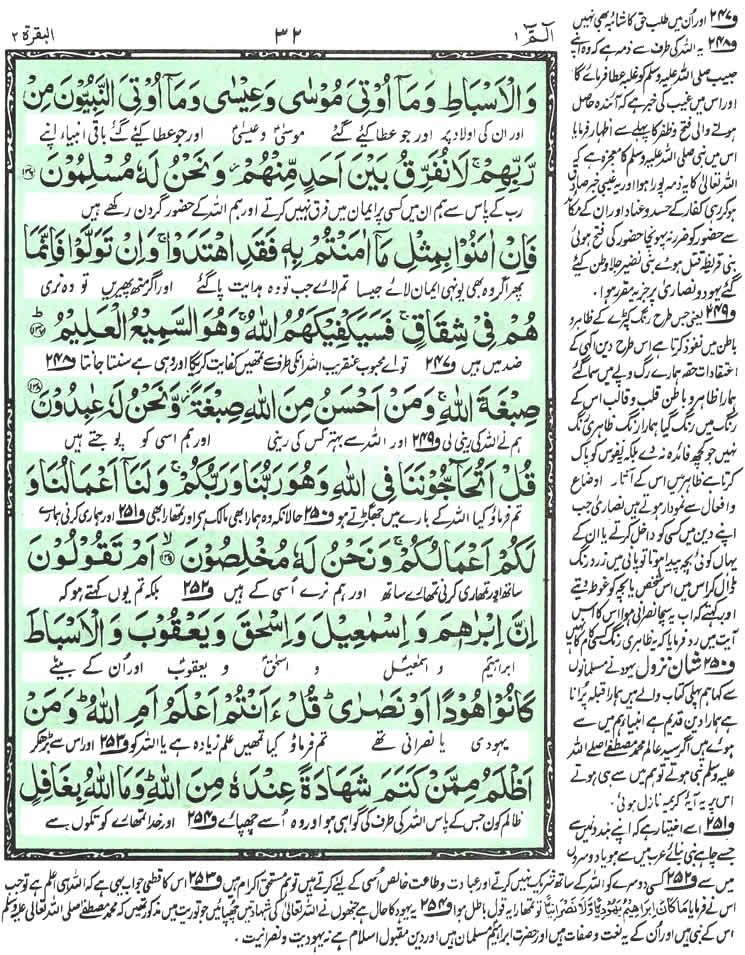 الٓمّٓ ١
٣٢
البقرة ٢
وَالْاَسْبَاطِ وَمَآ اُوْتِيَ مُوْسٰى وَعِيْسٰى وَمَآ اُوْتِيَ النَّبِيُّوْنَ مِنْ
اور ان کی اولاد پر اور جو عطا کئے گئے موسیٰ و عیسیٰ اور جو عطا کئے گئے باقی انبیاء اپنے
رَّبِّهِمْ ۚ لَا نُفَرِّقُ بَيْنَ اَحَدٍ مِّنْهُمْ ۖ وَنَحْنُ لَهٗ مُسْلِمُوْنَ ﴿١٣٦﴾
رب کے پاس سے ہم ان میں کسی پر ایمان میں فرق نہیں کرتے اور ہم اللہ کے حضور گردن رکھے ہیں
فَاِنْ اٰمَنُوْا بِمِثْلِ مَآ اٰمَنْتُمْ بِهٖ فَقَدِ اهْتَدَوْا ۚ وَاِنْ تَوَلَّوْا فَاِنَّمَا
پھر اگر وہ بھی یونہی ایمان لائے جیسا تم لائے جب تو وہ ہدایت پا گئے اور اگر منھ پھیریں تو وہ نری
هُمْ فِيْ شِقَاقٍ ۚ فَسَيَكْفِيْكَهُمُ اللّٰهُ ۚ وَهُوَ السَّمِيْعُ الْعَلِيْمُ ﴿١٣٧﴾
ضد میں ہیں و۲۴۷ تو اے محبوب عنقریب اللہ انکی طرف سے تمھیں کفایت کریگا اور وہی ہے سنتا جانتا و۲۴۸
صِبْغَةَ اللّٰهِ ۚ وَمَنْ اَحْسَنُ مِنَ اللّٰهِ صِبْغَةً ۖ وَّنَحْنُ لَهٗ عٰبِدُوْنَ ﴿١٣٨﴾
ہم نے اللہ کی رینی لی و۲۴۹ اور اللہ سے بہتر کس کی رینی اور ہم اسی کو پوجتے ہیں
قُلْ اَتُحَآجُّوْنَنَا فِي اللّٰهِ وَهُوَ رَبُّنَا وَرَبُّكُمْ ۚ وَلَنَآ اَعْمَالُنَا وَ
تم فرماؤ کیا اللہ کے بارے میں جھگڑتے ہو و۲۵۰ حالانکہ وہ ہمارا بھی مالک ہے اور تمھارا بھی و۲۵۱ اور ہماری کرنی ہمارے
لَكُمْ اَعْمَالُكُمْ ۚ وَنَحْنُ لَهٗ مُخْلِصُوْنَ ﴿١٣٩﴾ اَمْ تَقُوْلُوْنَ
ساتھ اور تمھاری کرنی تمھارے ساتھ اور ہم نرے اُسی کے ہیں و۲۵۲ بلکہ تم یوں کہتے ہو کہ
اِنَّ اِبْرٰهِمَ وَ اِسْمٰعِيْلَ وَ اِسْحٰقَ وَ يَعْقُوْبَ وَ الْاَسْبَاطَ
ابراہیم و اسمٰعیل و اسحٰق و یعقوب اور اُن کے بیٹے
كَانُوْا هُوْدًا اَوْ نَصٰرٰى ۗ قُلْ ءَاَنْتُمْ اَعْلَمُ اَمِ اللّٰهُ ۗ وَمَنْ
یہودی یا نصرانی تھے تم فرماؤ کیا تمھیں علم زیادہ ہے یا اللہ کو و۲۵۳ اور اس سے بڑھکر
اَظْلَمُ مِمَّنْ كَتَمَ شَهَادَةً عِنْدَهٗ مِنَ اللّٰهِ ۗ وَمَا اللّٰهُ بِغَافِلٍ
ظالم کون جس کے پاس اللہ کی طرف کی گواہی ہو اور وہ اُسے چھپائے و۲۵۴ اور خدا تمھارے کوتکوں سے
و۲۴۷ اور اُن میں طلب حق کا شائبہ بھی نہیں
و۲۴۸ یہ اللہ کی طرف سے ذمہ ہے کہ وہ اپنے
حبیب صلی اللہ علیہ وسلم کو غلبہ عطا فرمائے گا
اور اس میں غیب کی خبر ہے کہ آئندہ حاصل
ہونے والی فتح و ظفر کا پہلے سے اظہار فرمایا
اس میں نبی صلی اللہ علیہ وسلم کا معجزہ ہے کہ
اللہ تعالیٰ کا یہ ذمہ پورا ہوا اور یہ غیبی خبر صادق
ہو کر رہی کفار کے حسد و عناد اور ان کے مکائد
سے حضور کو ضرر نہ پہونچا حضور کی فتح ہوئی
بنی قریظہ قتل ہوئے بنی نضیر جلا وطن کئے
گئے یہود و نصاریٰ پر جزیہ مقرر ہوا۔
و۲۴۹ یعنی جس طرح رنگ کپڑے کے ظاہر و
باطن میں نفوذ کرتا ہے اس طرح دین الٰہی کے
اعتقادات حقہ ہمارے رگ و پے میں سما گئے
ہمارا ظاہر و باطن قلب و قالب اس کے
رنگ میں رنگ گیا ہمارا رنگ ظاہری رنگ
نہیں جو کچھ فائدہ نہ دے بلکہ یہ نفوس کو پاک
کرتا ہے ظاہر میں اس کے آثار اوضاع
و افعال سے نمودار ہوتے ہیں نصاریٰ جب
اپنے دین میں کسی کو داخل کرتے یا ان کے
یہاں کوئی بچہ پیدا ہوتا تو پانی میں زرد رنگ
ڈال کر اس میں اس شخص یا بچہ کو غوطہ دیتے
اور کہتے کہ اب یہ سچا نصرانی ہوا اس کا اس
آیت میں رد فرمایا کہ یہ ظاہری رنگ کسی کام کا نہیں
و۲۵۰ شان نزول یہود نے مسلمانوں
سے کہا ہم پہلی کتاب والے ہیں ہمارا قبلہ پرانا
ہے ہمارا دین قدیم ہے انبیاء ہم میں سے
ہوئے ہیں اگر سید عالم محمد مصطفٰے صلی اللہ
علیہ وسلم نبی ہوتے تو ہم میں سے ہی ہوتے
اس پر یہ آیۂ کریمہ نازل ہوئی۔
و۲۵۱ اسے اختیار ہے کہ اپنے بندوں میں سے
جسے چاہے نبی بنائے عرب میں سے ہو یا دوسروں
میں سے و۲۵۲ کسی دوسرے کو اللہ کے ساتھ شریک نہیں کرتے اور عبادت و طاعت خالص اُسی کے لئے کرتے ہیں تو ہم مستحق اکرام ہیں و۲۵۳ اس کا قطعی جواب یہی ہے کہ اللہ ہی اعلم ہے تو جب
اس نے فرمایا مَا كَانَ اِبْرٰهِيْمُ يَهُوْدِيًّا وَّلَا نَصْرَانِيًّا تو تمھارا یہ قول باطل ہوا و۲۵۴ یہ یہود کا حال ہے جنھوں نے اللہ تعالیٰ کی شہادتیں چھپائیں جو توریت میں مذکور تھیں کہ محمد مصطفٰے صلی اللہ تعالیٰ علیہ وسلم
اس کے نبی ہیں اور اُن کے یہ نعت و صفات ہیں اور حضرت ابراہیم مسلمان ہیں اور دین مقبول اسلام ہے نہ یہودیت و نصرانیت۔